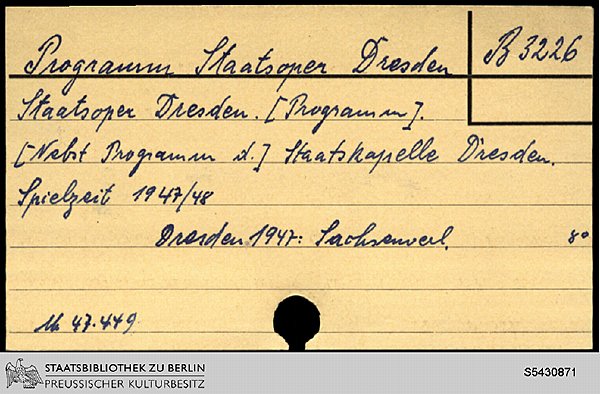 Programm Staatsoper Dresden
B 3226
Staatsoper Dresden. [Programm].
[Nebst Programm d.] Staatskapelle Dresden.
Spielzeit 1947/48
Dresden 1947: Sachsenverl.
8°
47.449
STAATSBIBLIOTHEK ZU BERLIN
PREUSSISCHER KULTURBESITZ
S5430871